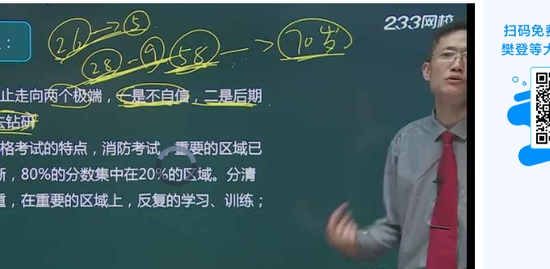 ：
233网校
26 → 5
28 - 9 58 → 70岁
止走向两个极端，一是不自信，二是后期
去钻研
格考试的特点，消防考试，重要的区域已
晰，80%的分数集中在20%的区域。分清
重，在重要的区域上，反复的学习、训练；
扫码免费
樊登等大